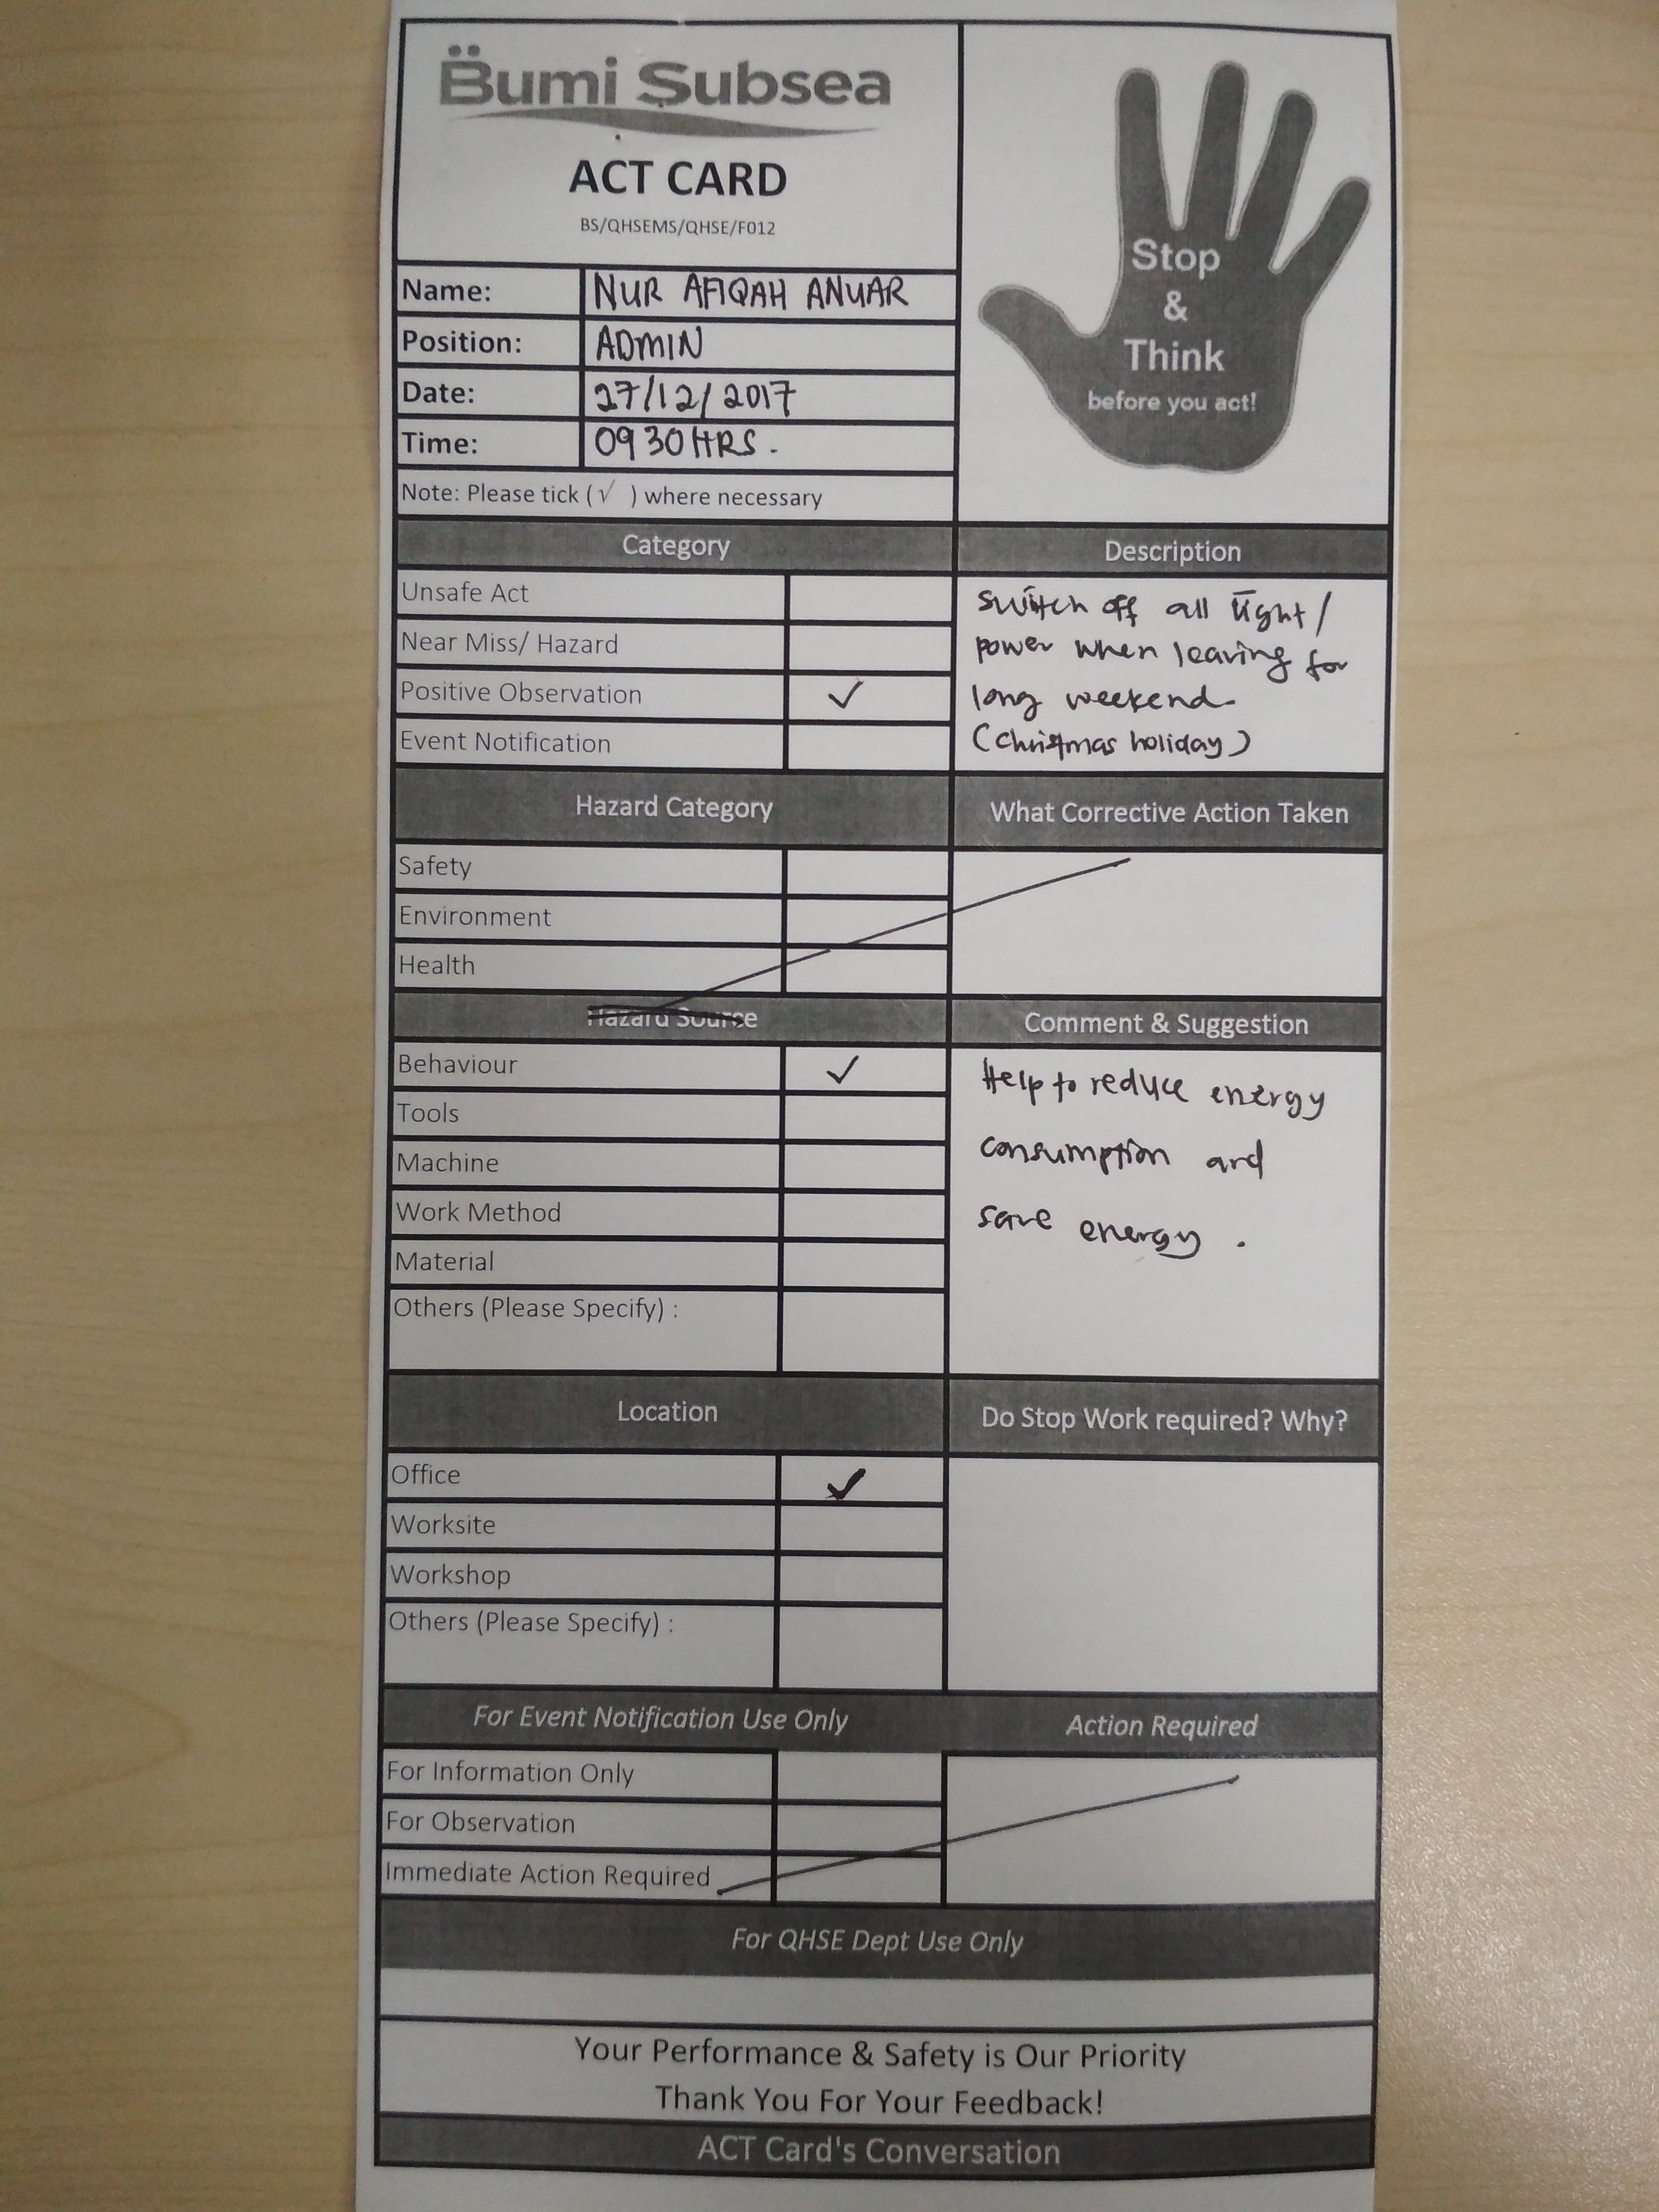 Bumi Subsea
ACT CARD
BS/QHSEMS/QHSE/F012
Stop
&
Think
before you act!
Name: NUR AFIQAH ANUAR
Position: ADMIN
Date: 27/12/2017
Time: 0930HRS.
Note: Please tick (√ ) where necessary
Category
Unsafe Act
Near Miss/ Hazard
Positive Observation ✓
Event Notification
Description
switch off all light/
power when leaving for
long weekend.
(Christmas holiday)
Hazard Category
Safety
Environment
Health
What Corrective Action Taken
Hazard Source
Behaviour ✓
Tools
Machine
Work Method
Material
Others (Please Specify) :
Comment & Suggestion
Help to reduce energy
consumption and
save energy.
Location
Office ✓
Worksite
Workshop
Others (Please Specify) :
Do Stop Work required? Why?
For Event Notification Use Only
For Information Only
For Observation
Immediate Action Required
Action Required
For QHSE Dept Use Only
Your Performance & Safety is Our Priority
Thank You For Your Feedback!
ACT Card's Conversation